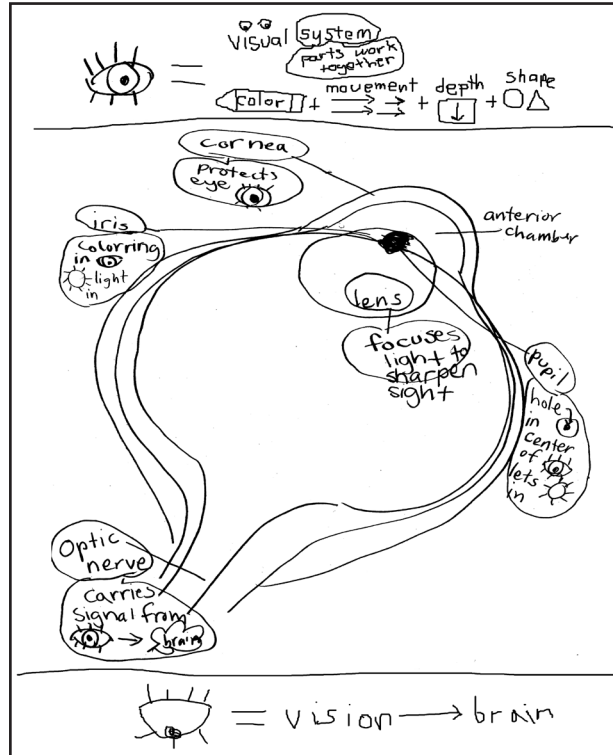 visual system
=
parts work
together
movement
depth
shape
color + + +
cornea
protects
eye
iris
colorring
in
light
in
anterior
chamber
lens
focuses
light to
sharpen
sight
pupil
hole
in
center
of
lets
in
Optic
nerve
carries
signal from
brain
= vision → brain